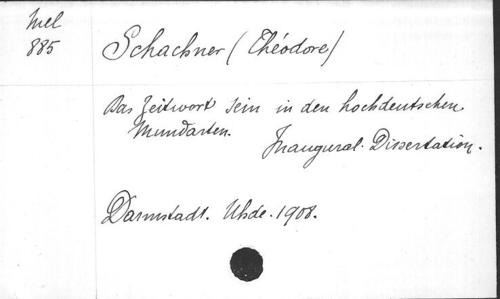 Mel
885
Schachner (Théodore)
Das Zeitwort sein in den hochdeutschen
Mundarten. Inaugural-Dissertation.
Darmstadt. Uhde. 1908.